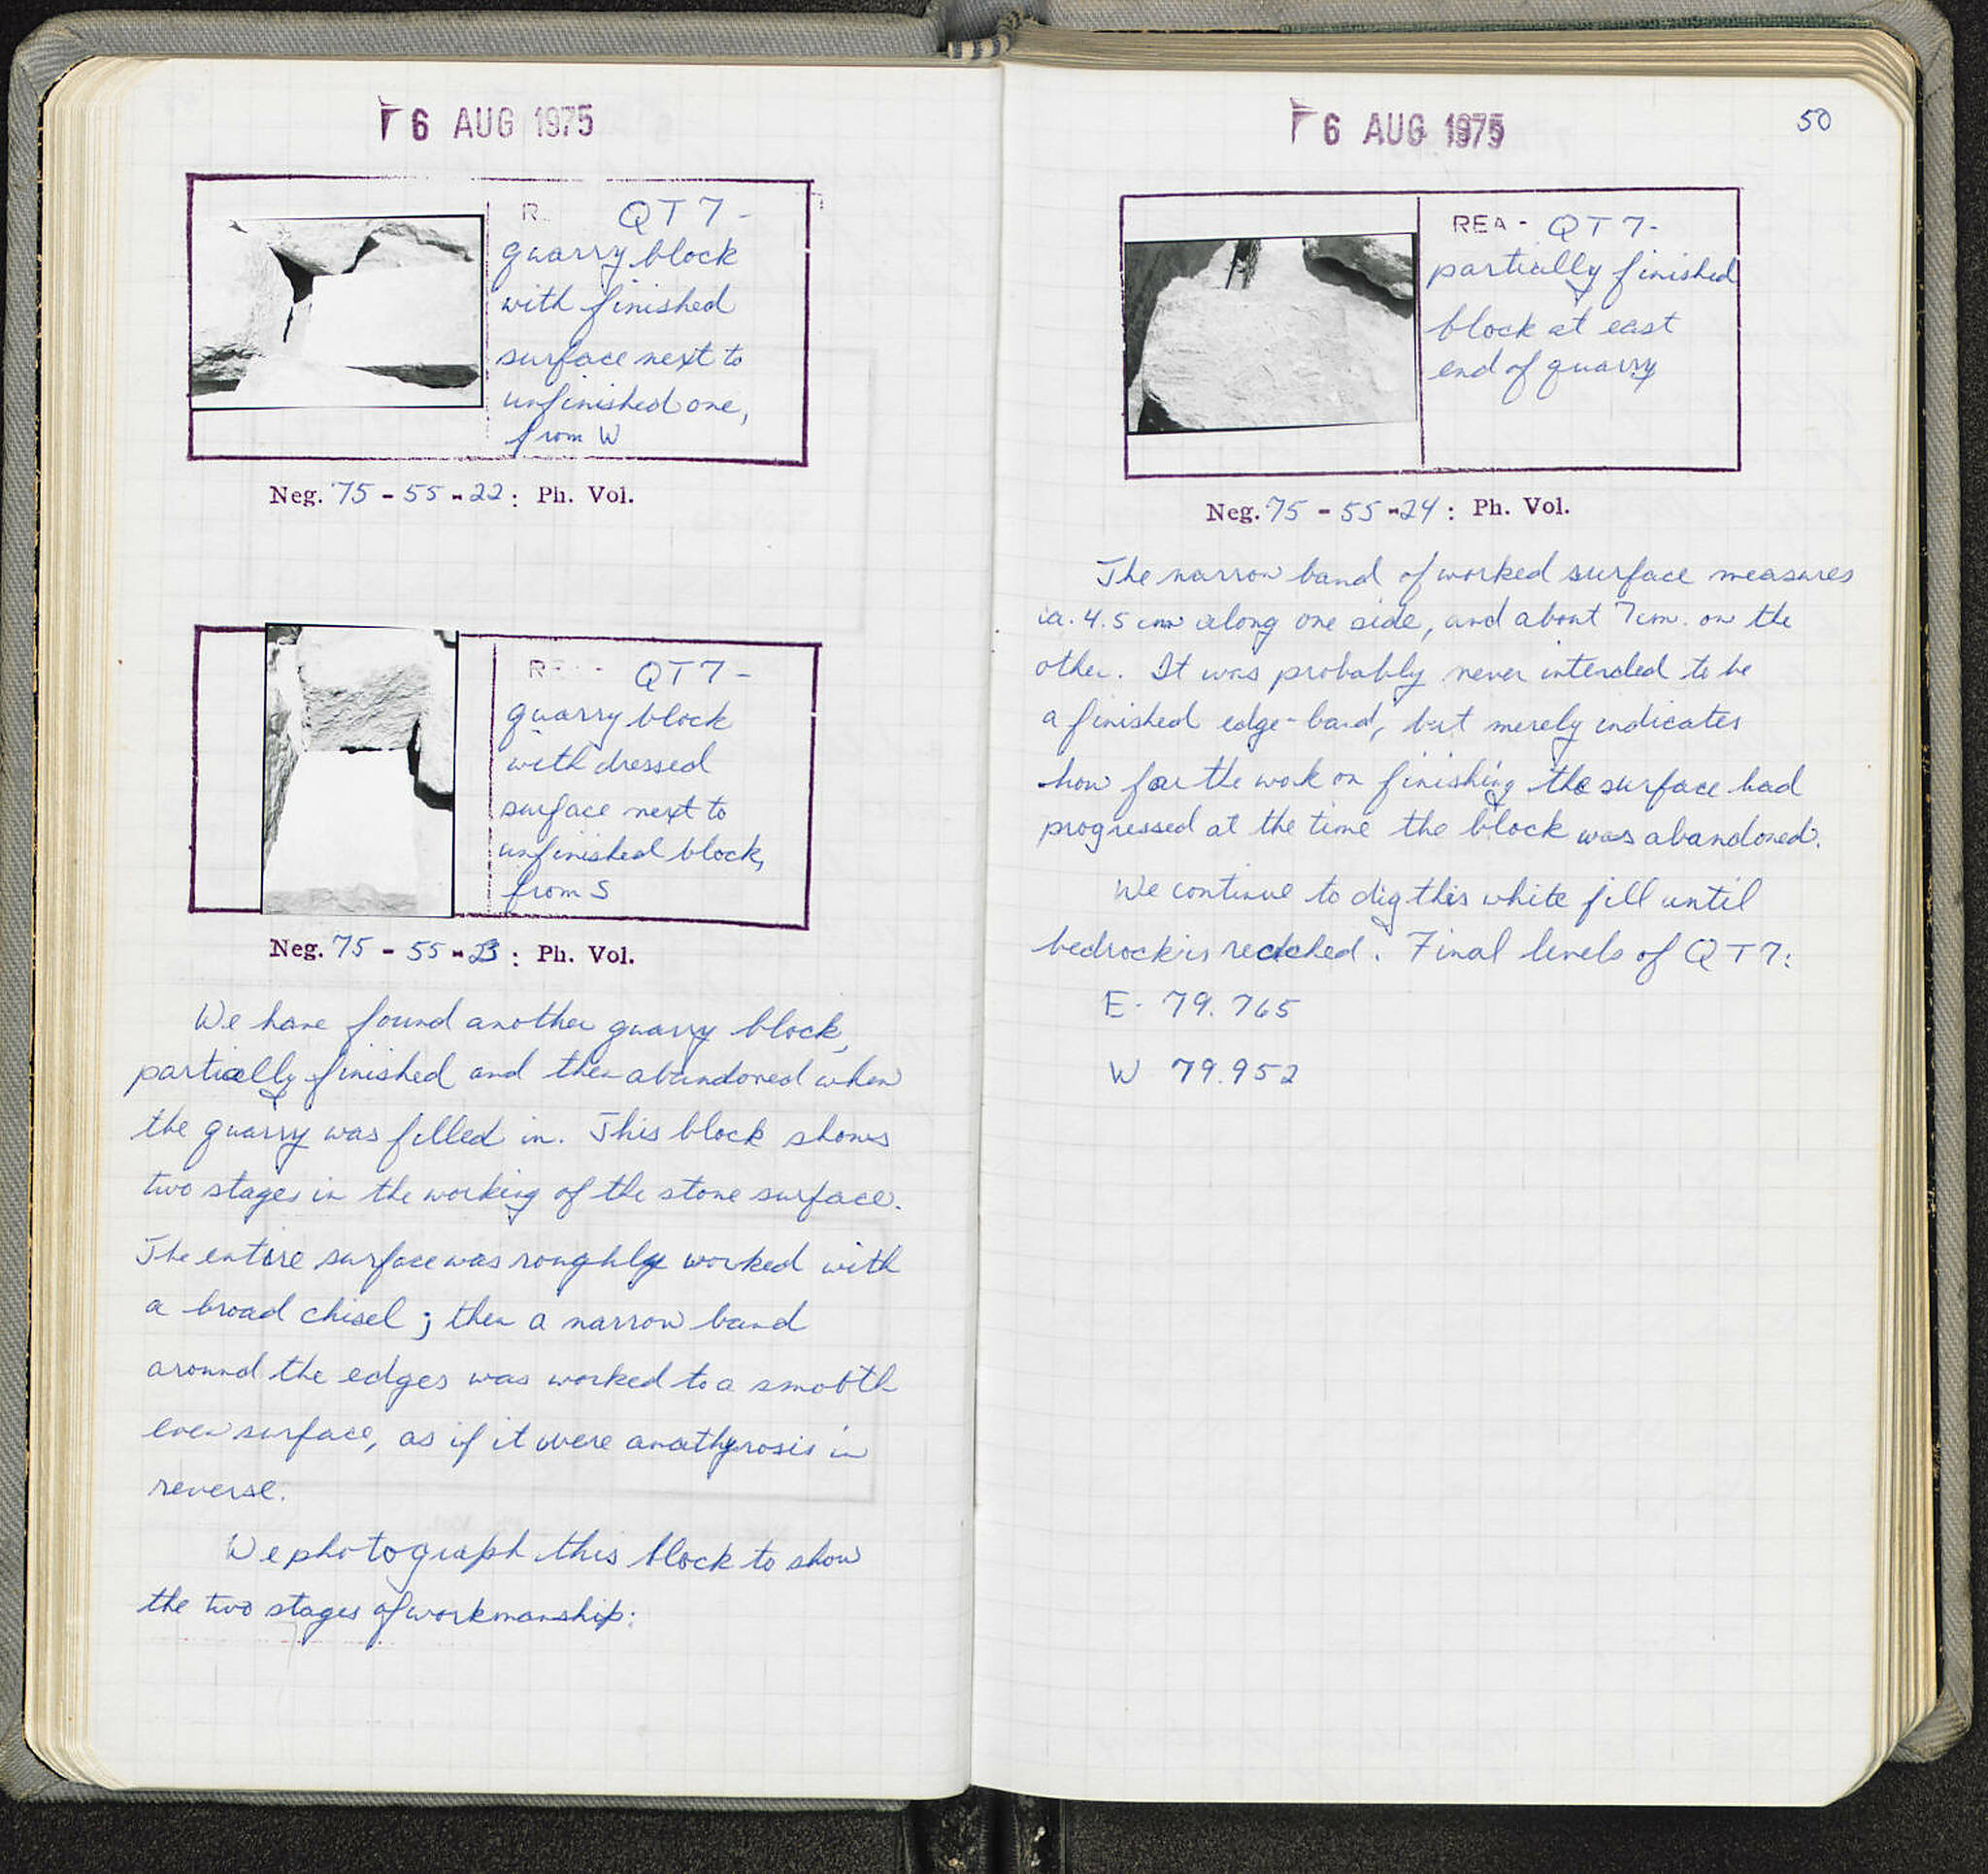 6 AUG 1975
R QT 7 -
quarry block
with finished
surface next to
unfinished one,
from W
Neg. 75 - 55 - 22 : Ph. Vol.
R QT 7 -
quarry block
with dressed
surface next to
unfinished block,
from S
Neg. 75 - 55 - 23 : Ph. Vol.
We have found another quarry block,
partially finished and then abandoned when
the quarry was filled in. This block shows
two stages in the working of the stone surface.
The entire surface was roughly worked with
a broad chisel; then a narrow band
around the edges was worked to a smooth
even surface, as if it were anathyrosis in
reverse.
We photograph this block to show
the two stages of workmanship:
6 AUG 1975
50
REA - QT 7 -
partially finished
block at east
end of quarry
Neg. 75 - 55 - 24 : Ph. Vol.
The narrow band of worked surface measures
ca. 4.5 cm along one side, and about 7 cm. on the
other. It was probably never intended to be
a finished edge-band, but merely indicates
how far the work on finishing the surface had
progressed at the time the block was abandoned.
We continue to dig this white fill until
bedrock is reached. Final levels of QT7:
E - 79.765
W 79.952